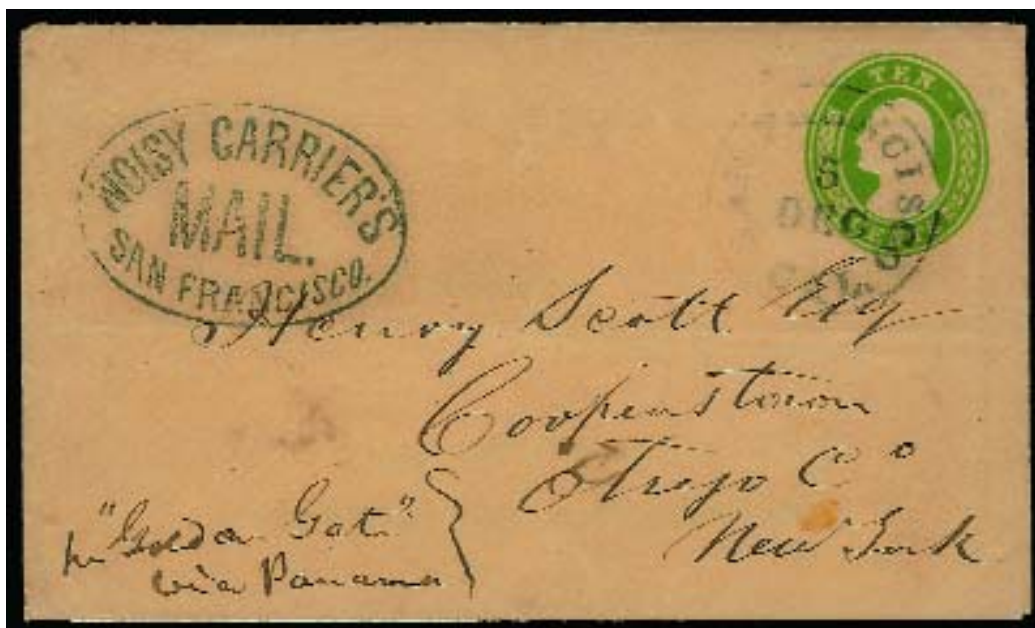 NOISY CARRIER'S
MAIL.
SAN FRANCISCO.
TEN
DEC
Henry Scott Esq
Cooperstown
Otsego Co
New York
pr "Golden Gate"
via Panama